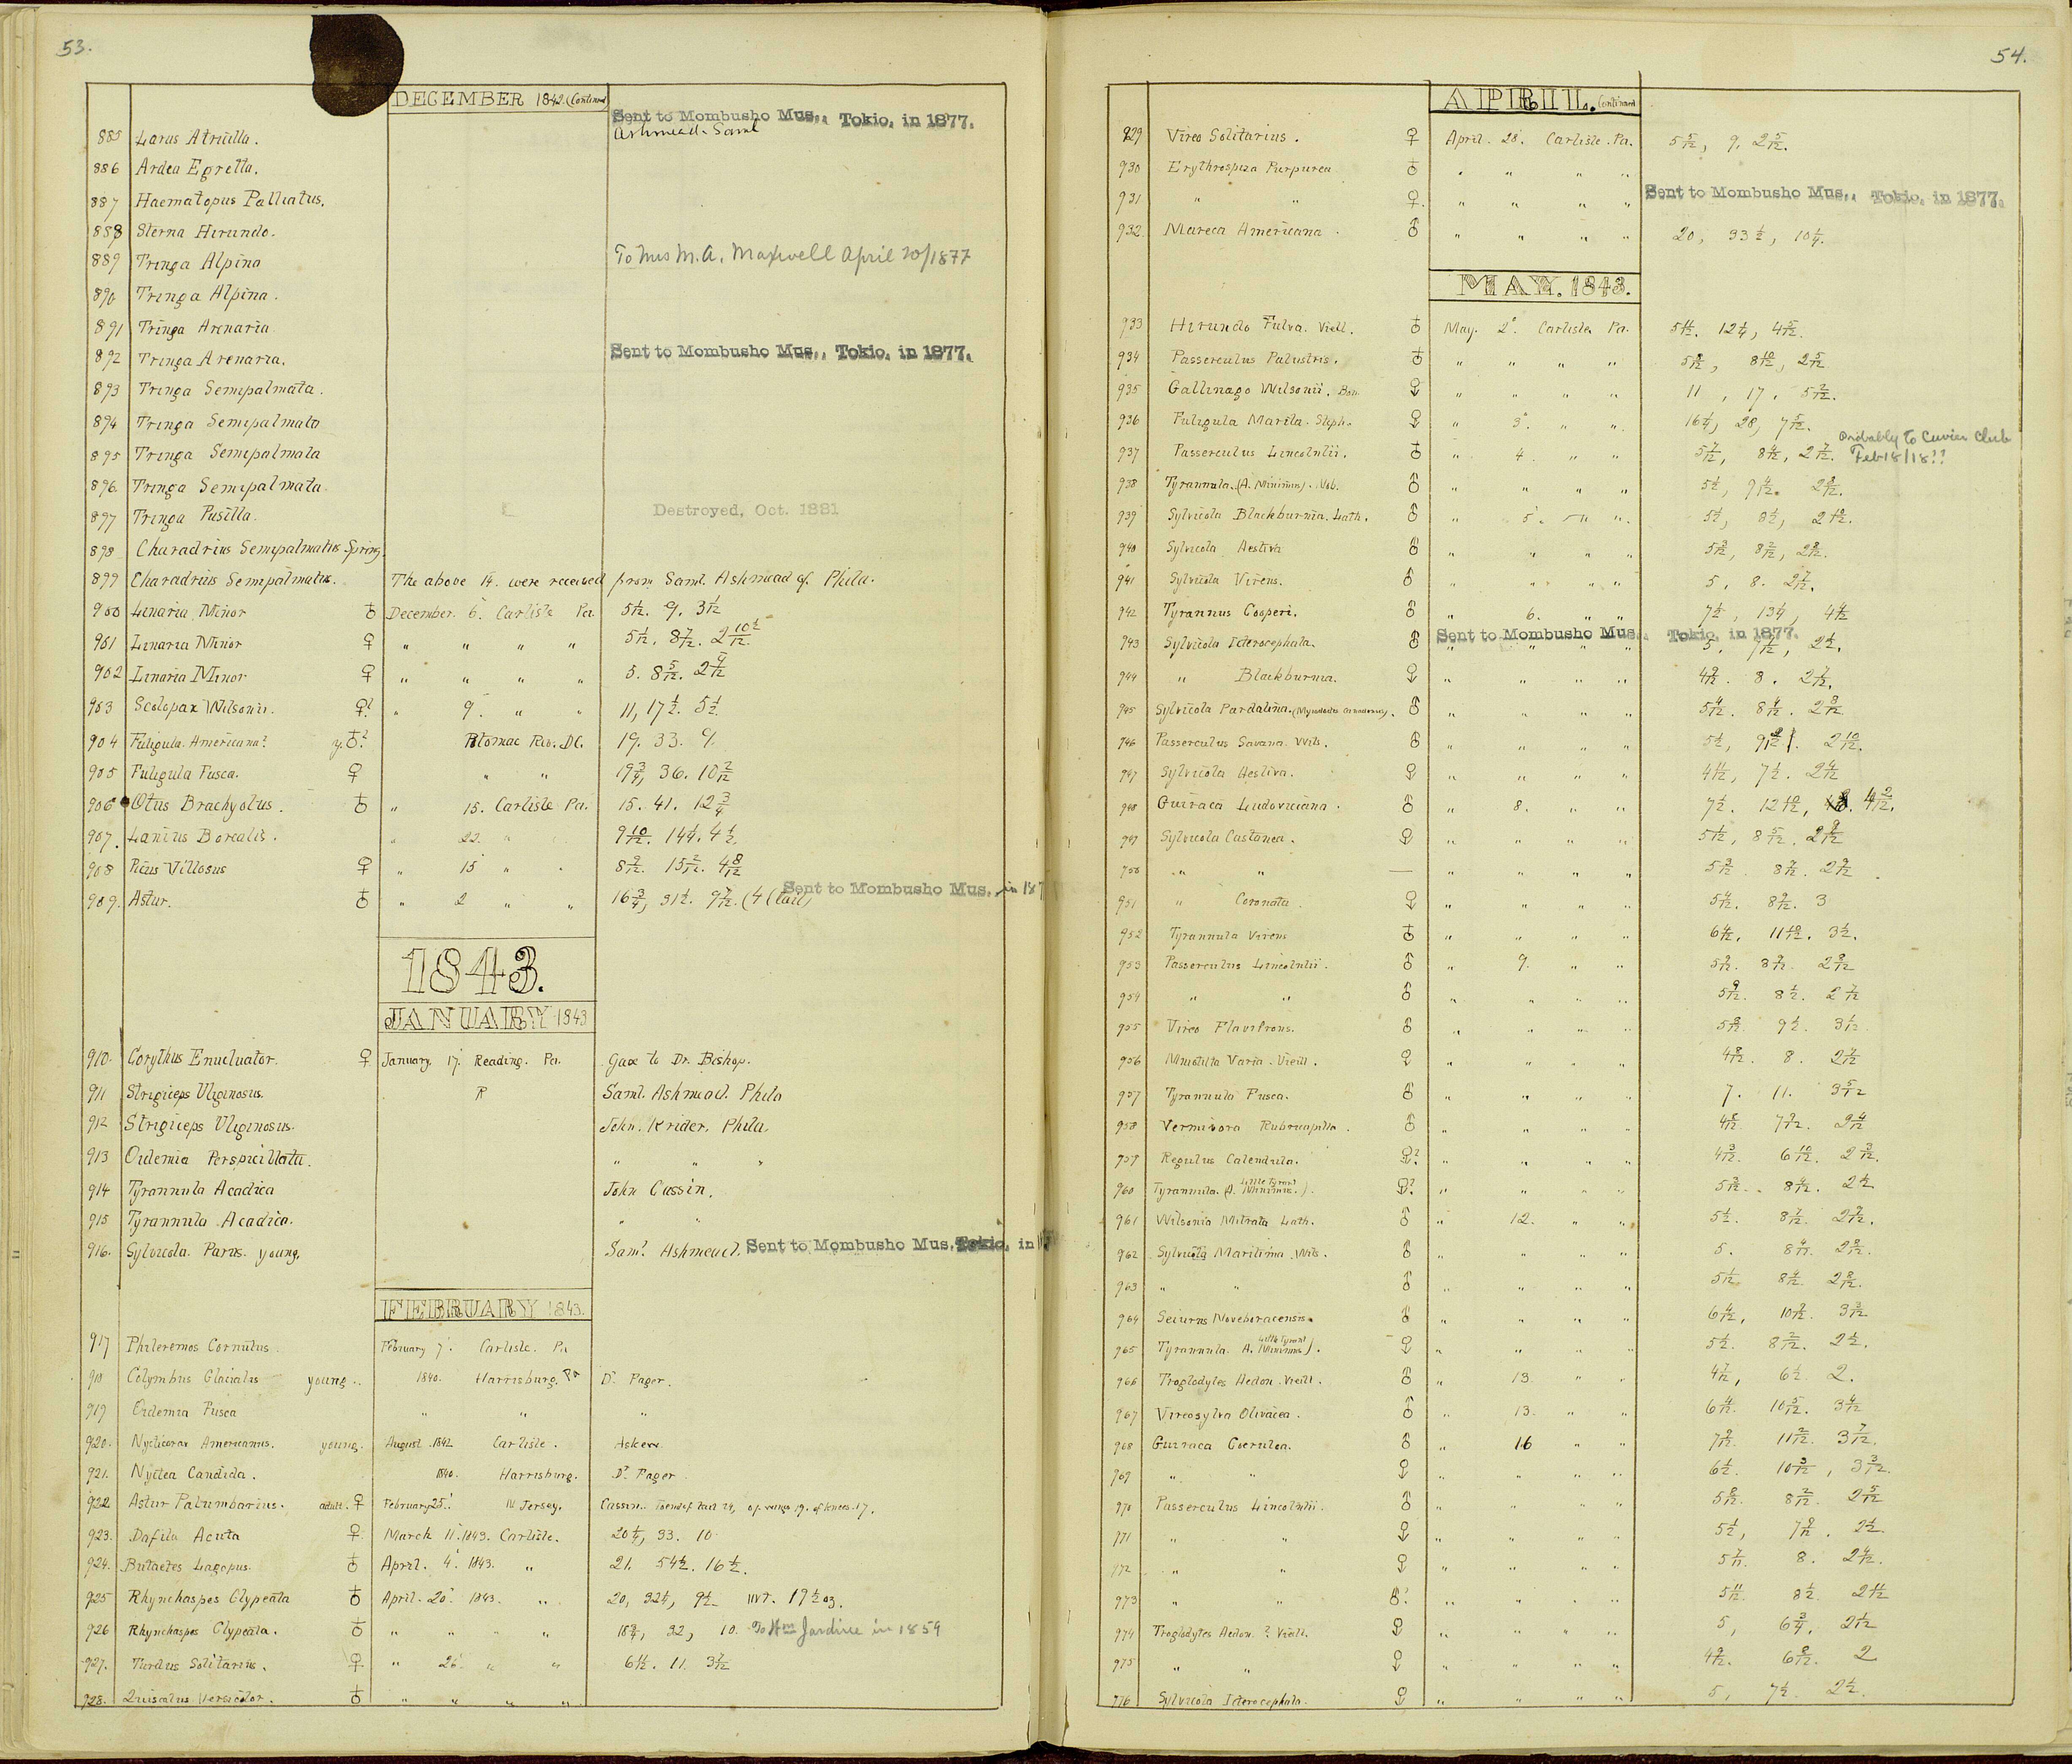 53.
DECEMBER 1842. (Continued)
Sent to Mombusho Mus., Tokio, in 1877.
885 Larus Atricilla. Ashmead. Saml
886 Ardea Egretta.
887 Haematopus Palliatus.
888 Sterna Hirundo.
889 Tringa Alpina To Mrs M. A. Maxwell April 20/1877
890 Tringa Alpina.
891 Tringa Arenaria
892 Tringa Arenaria. Sent to Mombusho Mus., Tokio, in 1877.
893 Tringa Semipalmata.
894 Tringa Semipalmata
895 Tringa Semipalmata
896. Tringa Semipalmata
897 Tringa Pusilla. Destroyed, Oct. 1881
898 Charadrius Semipalmatus Spring.
899 Charadrius Semipalmatus. The above 14. were received from Saml. Ashmead of Phila.
900 Linaria Minor ♁ December. 6. Carlisle Pa. 5 1/12. 9. 3 1/12
901 Linaria Minor ♀ " " " " 5 1/2. 8 7/12. 2 10 1/2/12
902 Linaria Minor ♀ " " " " 5. 8 5/12. 2 9/12
903 Scolopax Wilsonii. ♀? " 9. " " 11, 17 1/2. 5 1/2.
904 Fuligula. Americana? y.♁? Potomac Riv. D.C. 19. 33. 9.
905 Fuligula Fusca. ♀ " " 19 3/4, 36. 10 2/12
906 Otus Brachyotus. ♁ " 15. Carlisle Pa. 15. 41. 12 3/4
907. Lanius Borealis. " 22. " 9 10/12. 14 1/4. 4 1/2.
908 Picus Villosus ♀ " 15 " " 8 9/12. 15 2/12. 4 8/12
909. Astur. ♁ " 2 " " 16 3/4, 31 1/2. 9 7/12. (4 (tail) Sent to Mombusho Mus., in 187
1843.
JANUARY 1843
910. Corythus Enucluator. ♀ January. 17. Reading. Pa. Gave to Dr. Bishop.
911 Strigiceps Uliginosus. R Saml. Ashmead. Phila
912 Strigiceps Uliginosus. John. Krider. Phila.
913 Oidemia Perspicillata. " " "
914 Tyrannula Acadica John Cassin.
915 Tyrannula Acadica. " "
916. Sylvicola. Parus. young. Saml. Ashmead. Sent to Mombusho Mus. Tokio, in
FEBRUARY 1843.
917 Phileremos Cornutus. February 7. Carlisle. Pa
918 Colymbus Glacialis young.. 1840. Harrisburg. Pa Dr. Pager.
919 Oidemia Fusca " " "
920. Nycticorax Americanus. young. August. 1842 Carlisle. Askew
921. Nyctea Candida. 1840. Harrisburg. Dr. Pager
922 Astur Palumbarius. adult. ♀ February 25. N Jersey. Cassin.
923. Dafila Acuta ♀ March 11. 1843. Carlisle. 20 1/4, 33. 10
924. Butaetes Lagopus. ♁ April. 4. 1843. " 21. 54 1/2. 16 1/2.
925 Rhynchaspes Clypeata ♁ April. 20. 1843. " 20, 32 1/4, 9 1/2 wt. 19 1/2 oz.
926 Rhynchaspes Clypeata. ♁ " " " " 18 3/4, 32, 10. To Wm Jardine in 1859
927. Turdus Solitarius. ♀ " 26. " " 6 11/12. 11. 3 7/12
928. Quiscalus Versicolor. ♁ " " " "
54.
APRIL. Continued
929 Vireo Solitarius. ♀ April. 28. Carlisle. Pa. 5 5/12, 9, 2 5/12.
930 Erythrospiza Purpurea ♁ " " " "
931 " " ♀. " " " " Sent to Mombusho Mus., Tokio, in 1877.
932. Mareca Americana. ♂ " " " " 20, 33 1/2, 10 1/4.
MAY. 1843.
933 Hirundo Fulva. Viell. ♁ May. 2. Carlisle Pa. 5 11/12. 12 1/4, 4 5/12.
934 Passerculus Palustris. ♁ " " " " 5 9/12, 8 10/12, 2 5/12
935 Gallinago Wilsonii. Bon. ♀ " " " " 11, 17, 5 2/12.
936 Fuligula Marila. Steph. ♀ " 3. " " 16 1/4, 28, 7 5/12.
Probably to Cuvier Club
937 Passerculus Lincolnii. ♁ " 4. " " 5 7/12, 8 4/12, 2 7/12. Feb 18/18??
938 Tyrannula. (A. Minimus). Nob. ♂ " " " " 5 1/2, 9 4/12. 2 8/12.
939 Sylvicola Blackburnia. Lath. ♂ " 5. " " 5 1/2, 8 1/2, 2 10/12.
940 Sylvicola Aestiva ♂ " " " " 5 3/12, 8 2/12, 2 8/12.
941 Sylvicola Virens. ♂ " " " " 5, 8. 2 7/12.
942 Tyrannus Cooperi. ♂ " 6. " " 7 1/2, 13 1/4, 4 4/12
943 Sylvicola Icterocephala. ♂ Sent to Mombusho Mus., Tokio, in 1877. 5, 7 11/12, 2 1/2.
944 " Blackburnia. ♀ " " " " 4 9/12. 8. 2 7/12.
945 Sylvicola Pardalina. ♂ " " " " 5 4/12. 8 4/12. 2 8/12
946 Passerculus Savana. Wils. ♂ " " " " 5 1/2, 2 10/12.
947 Sylvicola Aestiva. ♀ " " " " 4 11/12, 7 1/2. 2 4/12
948 Guiraca Ludoviciana. ♂ " 8. " " 7 1/2. 12 10/12, 4 2/12.
949 Sylvicola Castanea. ♀ " " " " 5 1/12, 8 5/12. 2 9/12
950 " " — " " " " 5 3/12. 8 7/12. 2 9/12
951 " Coronata. ♀ " " " " 5 4/12. 8 9/12. 3
952 Tyrannula Virens ♁ " " " " 6 4/12. 11 10/12. 3 1/2.
953 Passerculus Lincolnii. ♂ " 9. " " 5 9/12. 8 9/12. 2 8/12
954 " " ♂ " " " " 5 9/12. 8 1/2. 2 7/12
955 Vireo Flavifrons. ♂ " " " " 5 8/12. 9 1/2. 3 1/12
956 Mniotilta Varia. Vieill. ♀ " " " " 4 8/12. 8. 2 4/12
957 Tyrannula Fusca. ♂ " " " " 7. 11. 3 5/12
958 Vermivora Rubricapilla. ♂ " " " " 4 8/12. 7 9/12. 2 4/12
959 Regulus Calendula. ♀? " " " " 4 3/12. 6 10/12. 2 3/12.
960 Tyrannula. (A. Little Tyrant Minimus.). ♀? " " " " 5 3/12. 8 4/12. 2 1/2
961 Wilsonia Mitrata Lath. ♂ " 12. " " 5 1/2. 8 7/12. 2 9/12.
962 Sylvicola Maritima. Wils. ♂ " " " " 5. 8 4/12. 2 8/12.
963 " " ♂ " " " " 5 1/12 8 4/12. 2 8/12.
964 Seiurus Noveboracensis. ♂ " " " " 6 4/12, 10 9/12. 3 3/12
965 Tyrannula. A. Little Tyrant Minimus). ♀ " " " " 5 1/2. 8 2/12. 2 1/2.
966 Troglodytes Aedon. Vieill. ♂ " 13. " " 4 7/12, 6 1/2. 2.
967 Vireosylva Olivacea. ♂ " 13. " " 6 4/12. 10 5/12. 3 4/12
968 Guiraca Coerulea. ♂ " 16 " " 7 2/12. 11 2/12. 3 7/12.
969 " " ♀ " " " " 6 1/2. 10 3/12, 3 3/12.
970 Passerculus Lincolnii. ♂ " " " " 5 8/12. 8 2/12. 2 5/12
971 " " ♀ " " " " 5 1/2, 7 9/12. 2 1/2.
972 " " ♀ " " " " 5 7/12. 8. 2 4/12.
973 " " ♂? " " " " 5 11/12. 8 1/2. 2 11/12
974 Troglodytes Aedon. ? Vieill. ♀ " " " " 5, 6 3/4. 2 1/12
975 " " ♀ " " " " 4 9/12. 6 8/12. 2
976 Sylvicola Icterocephala. ♀ " " " " 5, 7 1/2. 2 1/2.